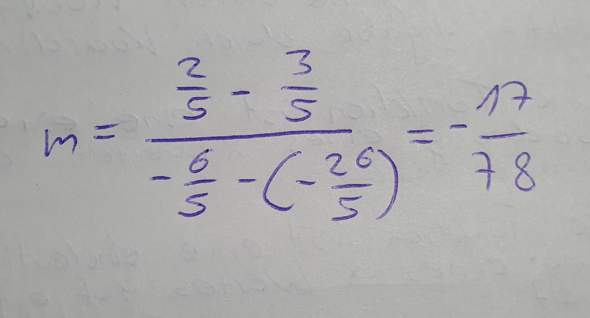 m = \frac{\frac{2}{5} - \frac{3}{5}}{-\frac{6}{5} - (-\frac{26}{5})} = -\frac{17}{78}